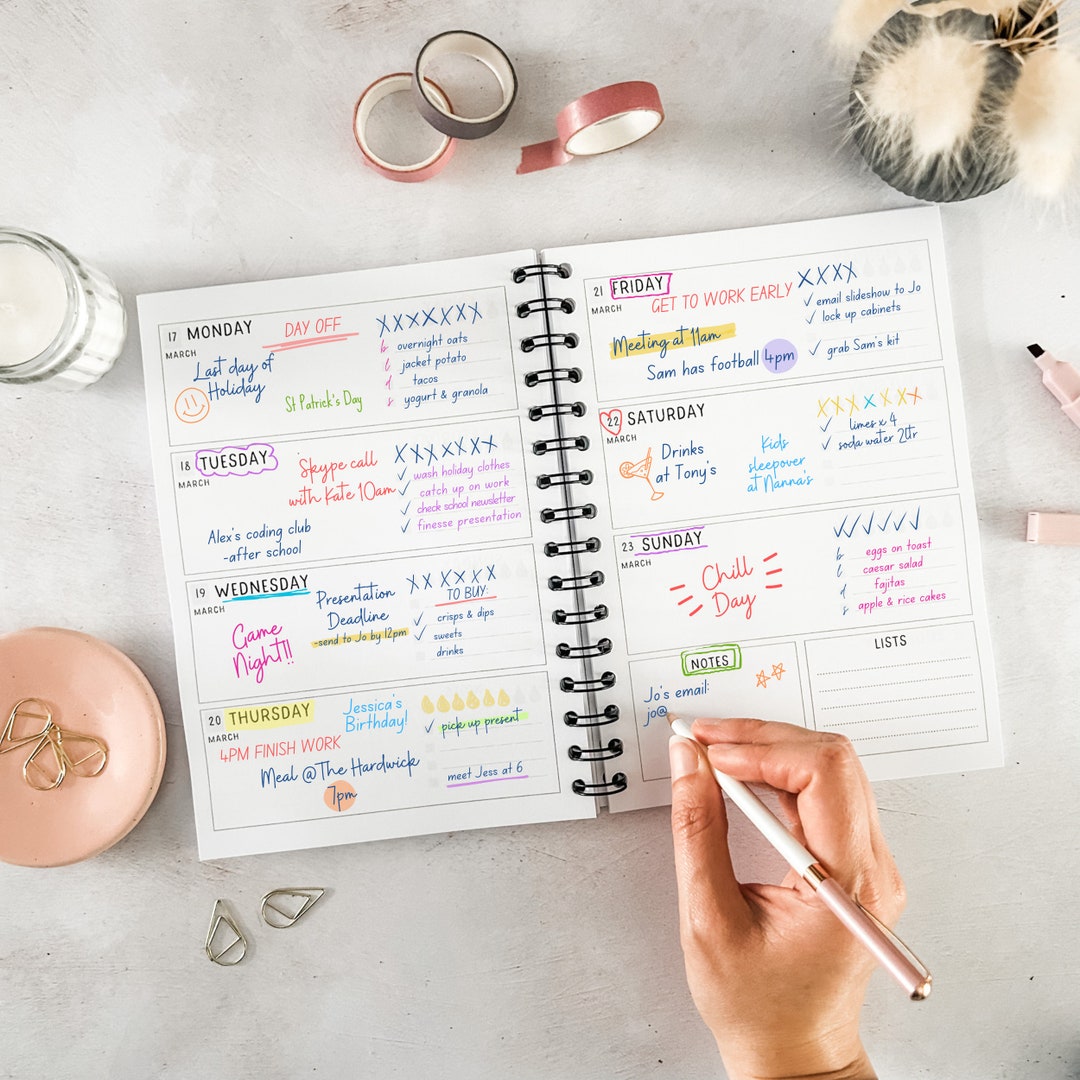 17 MONDAY
MARCH
DAY OFF
Last day of
Holiday
St Patrick's Day
XXXXXXX
b overnight oats
l jacket potato
d tacos
s yogurt & granola
18 TUESDAY
MARCH
Skype call
with Kate 10am
Alex's coding club
-after school
XXXXXXX
✓ wash holiday clothes
✓ catch up on work
✓ check school newsletter
✓ finesse presentation
19 WEDNESDAY
MARCH
Game
Night!!
Presentation
Deadline
-send to Jo by 12pm
XX XXXX
TO BUY:
✓ crisps & dips
✓ sweets
drinks
20 THURSDAY
MARCH
4PM FINISH WORK
Jessica's
Birthday!
Meal @ The Hardwick
7pm
✓ pick up present
meet Jess at 6
21 FRIDAY
MARCH
GET TO WORK EARLY
Meeting at 11am
Sam has football 4pm
XXXX
✓ email slideshow to Jo
✓ lock up cabinets
✓ grab Sam's kit
22 SATURDAY
MARCH
Drinks
at Tony's
Kids
sleepover
at Nanna's
XXXXXXX
✓ limes x 4
✓ soda water 2ltr
23 SUNDAY
MARCH
Chill
Day
✓✓✓✓✓
b eggs on toast
l caesar salad
d fajitas
s apple & rice cakes
NOTES
Jo's email:
jo@
LISTS